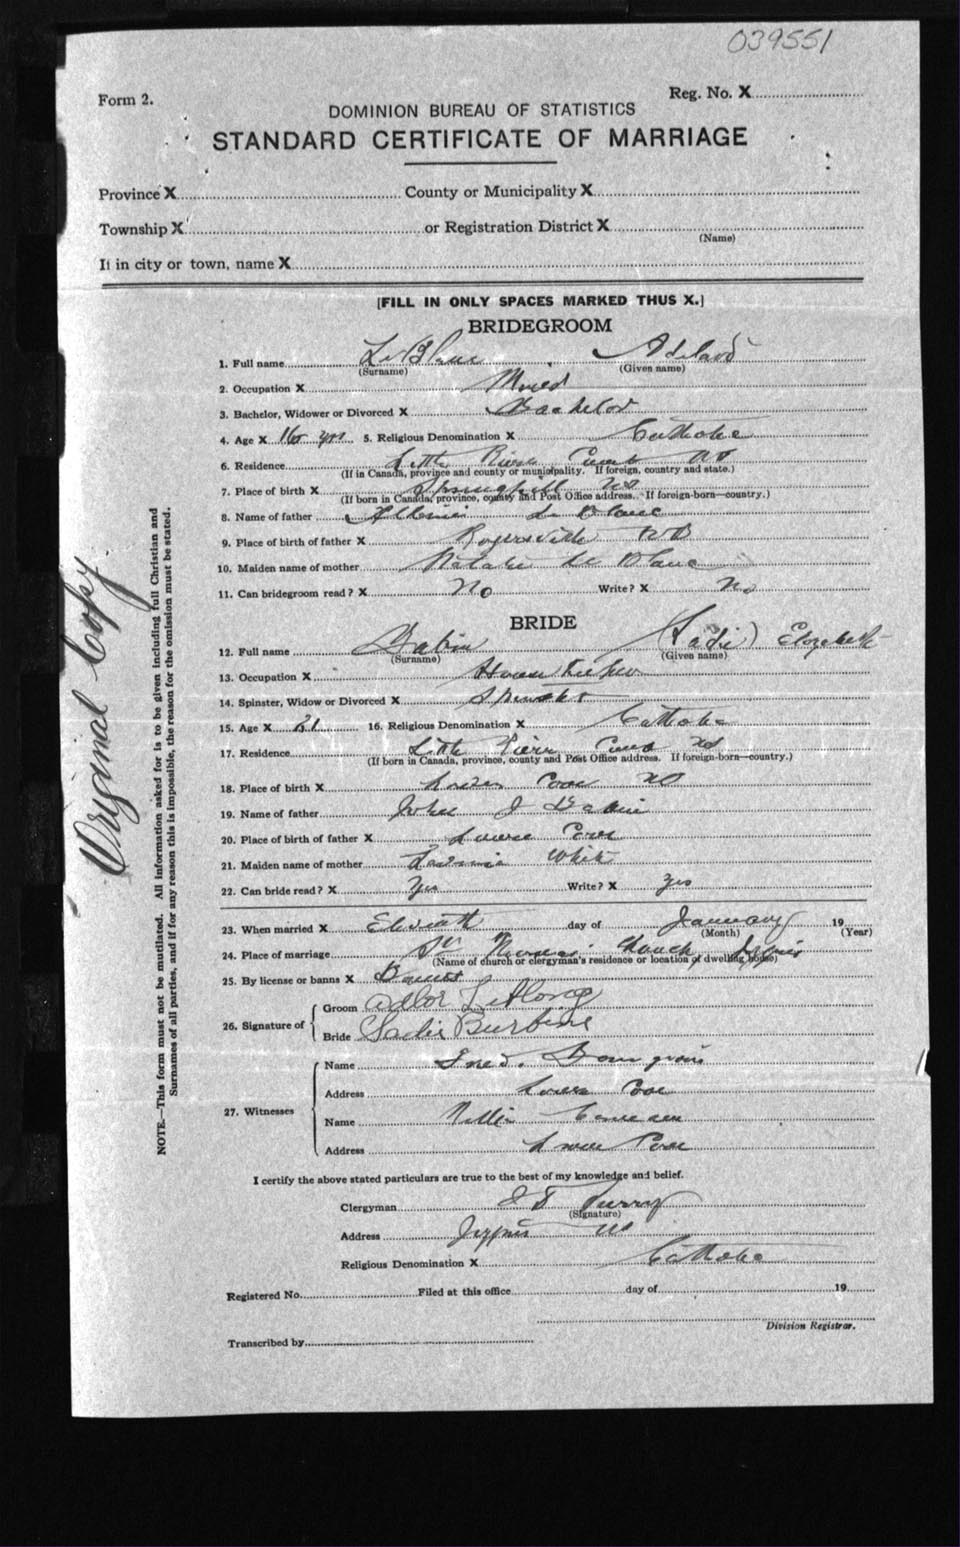 039551
Form 2.
Reg. No. X
DOMINION BUREAU OF STATISTICS
STANDARD CERTIFICATE OF MARRIAGE
Province X County or Municipality X
Township X or Registration District X
(Name)
If in city or town, name X
[FILL IN ONLY SPACES MARKED THUS X.]
BRIDEGROOM
1. Full name LeBlanc Adelard
(Surname) (Given name)
2. Occupation X
3. Bachelor, Widower or Divorced X Bachelor
4. Age X yrs 5. Religious Denomination X Catholic
6. Residence Little River Cumb NS
(If in Canada, province and county or municipality. If foreign, country and state.)
7. Place of birth X Springhill NS
(If born in Canada, province, county and Post Office address. If foreign-born—country.)
8. Name of father Le Blanc
9. Place of birth of father X Rogersville NB
10. Maiden name of mother Natalie Le Blanc
11. Can bridegroom read? X No Write? X No
BRIDE
12. Full name Babin (Sadie) Elizabeth
(Surname) (Given name)
13. Occupation X House Keeper
14. Spinster, Widow or Divorced X Spinster
15. Age X 21 16. Religious Denomination X Catholic
17. Residence Little River Cumb NS
(If born in Canada, province, county and Post Office address. If foreign-born—country.)
18. Place of birth X Lower Cove NS
19. Name of father John J Babin
20. Place of birth of father X Lower Cove
21. Maiden name of mother White
22. Can bride read? X Yes Write? X Yes
23. When married X Eleventh day of January 19
(Month) (Year)
24. Place of marriage St Thomas' Church Joggins
(Name of church or clergyman's residence or location of dwelling house)
25. By license or banns X Banns
26. Signature of
Groom
Bride Sadie Burbine
27. Witnesses
Name Fred. Bourgeois
Address Lower Cove
Name Nellie
Address Lower Cove
I certify the above stated particulars are true to the best of my knowledge and belief.
Clergyman
(Signature)
Address Joggins NS
Religious Denomination X Catholic
Registered No. Filed at this office day of 19
Division Registrar.
Transcribed by
Original Copy
NOTE.—This form must not be mutilated. All information asked for is to be given including full Christian and
Surnames of all parties, and if for any reason this is impossible, the reason for the omission must be stated.